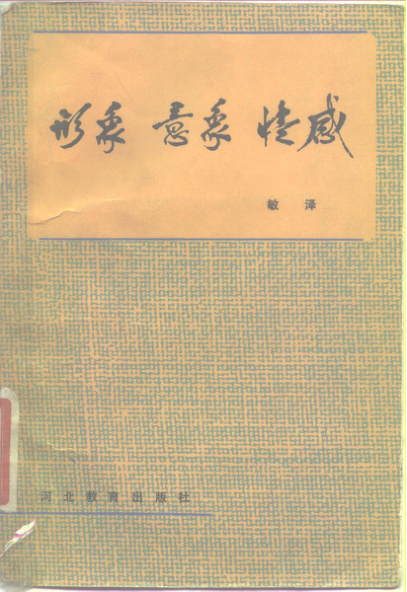 形象 意象 情感
敏泽
河北教育出版社